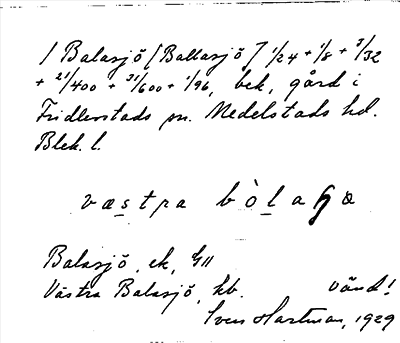 / Balasjö [Ballasjö] 1/24 + 1/8 + 3/32
+ 21/400 + 31/600 + 1/96, bek, gård i
Fridlevstads sn. Medelstads hd.
Blek. l.
væstra bòla
Balasjö, ek,
Västra Balasjö, kb. vänd!
Sven Hartman, 1929